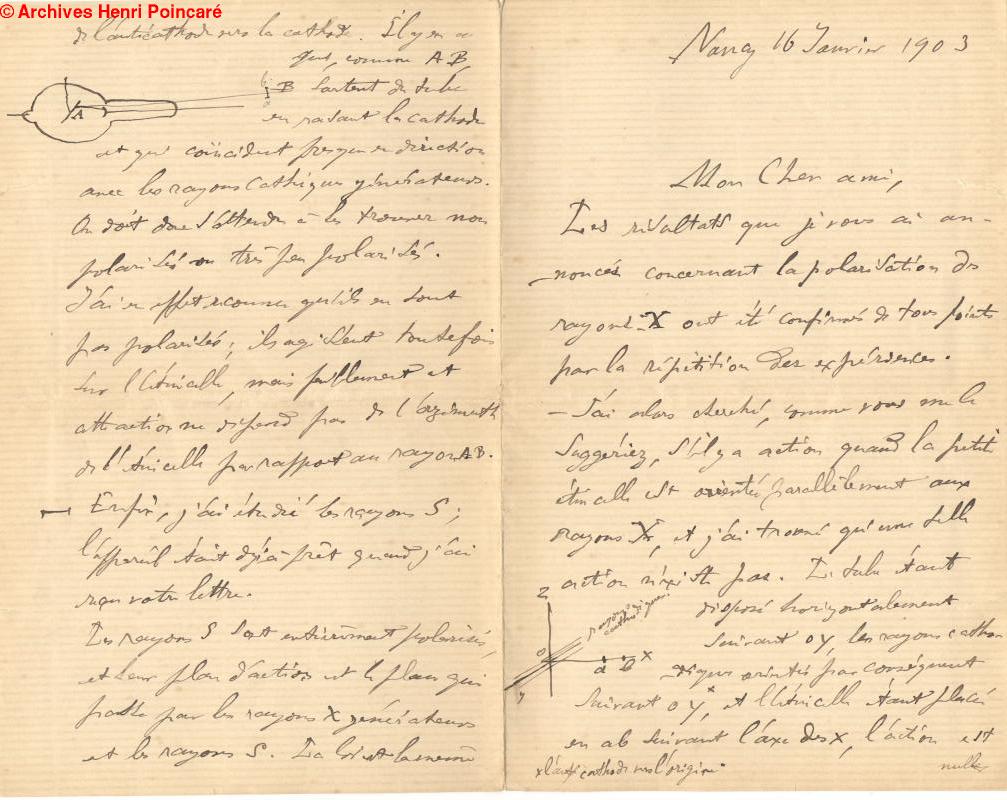 © Archives Henri Poincaré
Nancy 16 Janvier 1903
Mon Cher ami,
Les résultats que je vous ai an-
noncés concernant la polarisation des
rayons X ont été confirmés de tous points
par la répétition des expériences.
— J'ai alors cherché, comme vous me le
suggériez, s'il y a action quand la petite
étincelle est orientée parallèlement aux
rayons X, et j'ai trouvé qu'une telle
action n'existe pas. Le tube étant
disposé horizontalement
suivant oy, les rayons catho-
diques orientés par conséquent
suivant oy, x et l'étincelle étant placée
en ab suivant l'axe des x, l'action est
nulle
x l'anticathode vers l'origine
Z
rayons
cathodiques
o
a b x
y
de l'anticathode vers la cathode. Il y en a
qui, comme AB,
sortent du tube
en rasant la cathode
et qui coïncident presque en direction
avec les rayons cathodiques générateurs.
On doit donc s'attendre à les trouver non
polarisés ou très peu polarisés.
J'ai en effet reconnu qu'ils ne sont
pas polarisés ; ils agissent toutefois
sur l'étincelle, mais faiblement et
cette action ne dépend pas de l'azimuth
de l'étincelle par rapport au rayon AB.
— Enfin, j'ai étudié les rayons S ;
l'appareil était déjà prêt quand j'ai
reçu votre lettre.
Les rayons S sont entièrement polarisés,
et leur plan d'action est le plan qui
passe par les rayons X générateurs
et les rayons S. La loi est la même
A
b
B
a